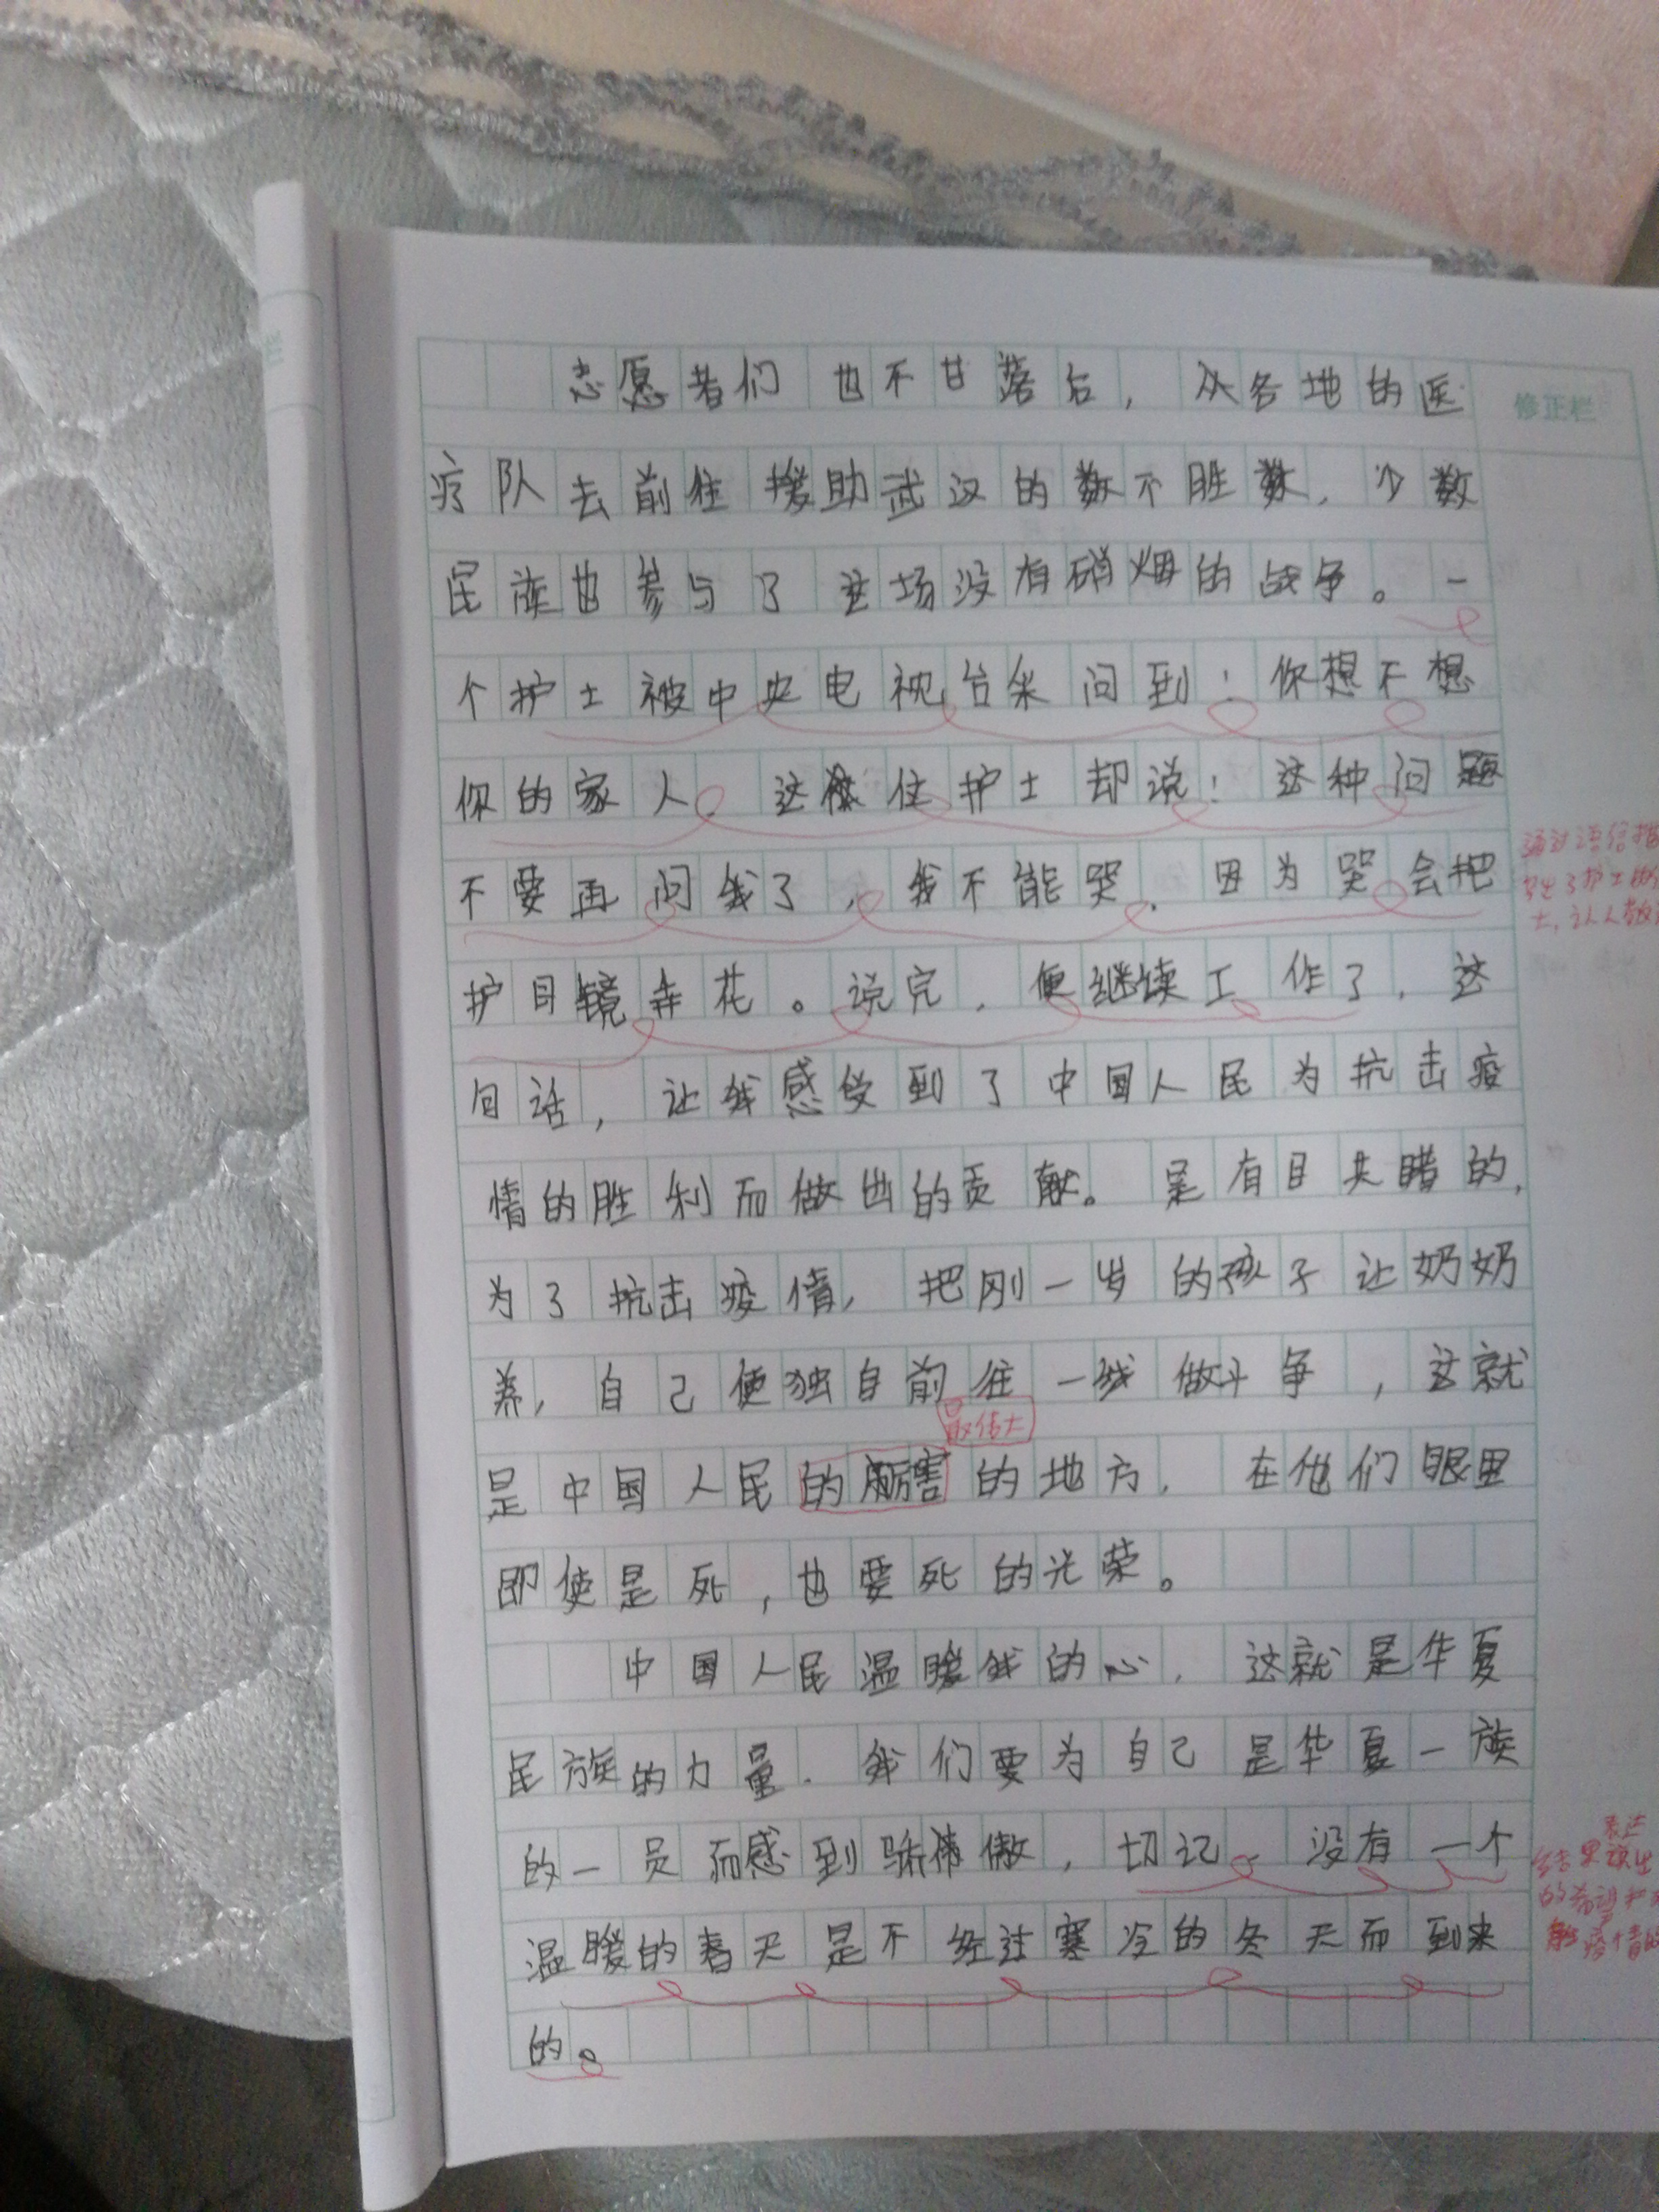 志愿者们也不甘落后，从各地的医
修正栏
疗队去前往援助武汉的数不胜数，少数
民族也参与了这场没有硝烟的战争。一
个护士被中央电视台采问到：你想不想
你的家人，这位护士却说：这种问题
不要再问我了，我不能哭，因为哭会把
护目镜弄花。说完，便继续工作了，这
句话，让我感受到了中国人民为抗击疫
情的胜利而做出的贡献。是有目共睹的，
为了抗击疫情，把刚一岁的孩子让奶奶
养，自己便独自前往一线做斗争，这就
最伟大
是中国人民的厉害的地方，在他们眼里
即使是死，也要死的光荣。
中国人民温暖我的心，这就是华夏
民族的力量，我们要为自己是华夏一族
的一员而感到骄傲，切记，没有一个
温暖的春天是不经过寒冷的冬天而到来
的。